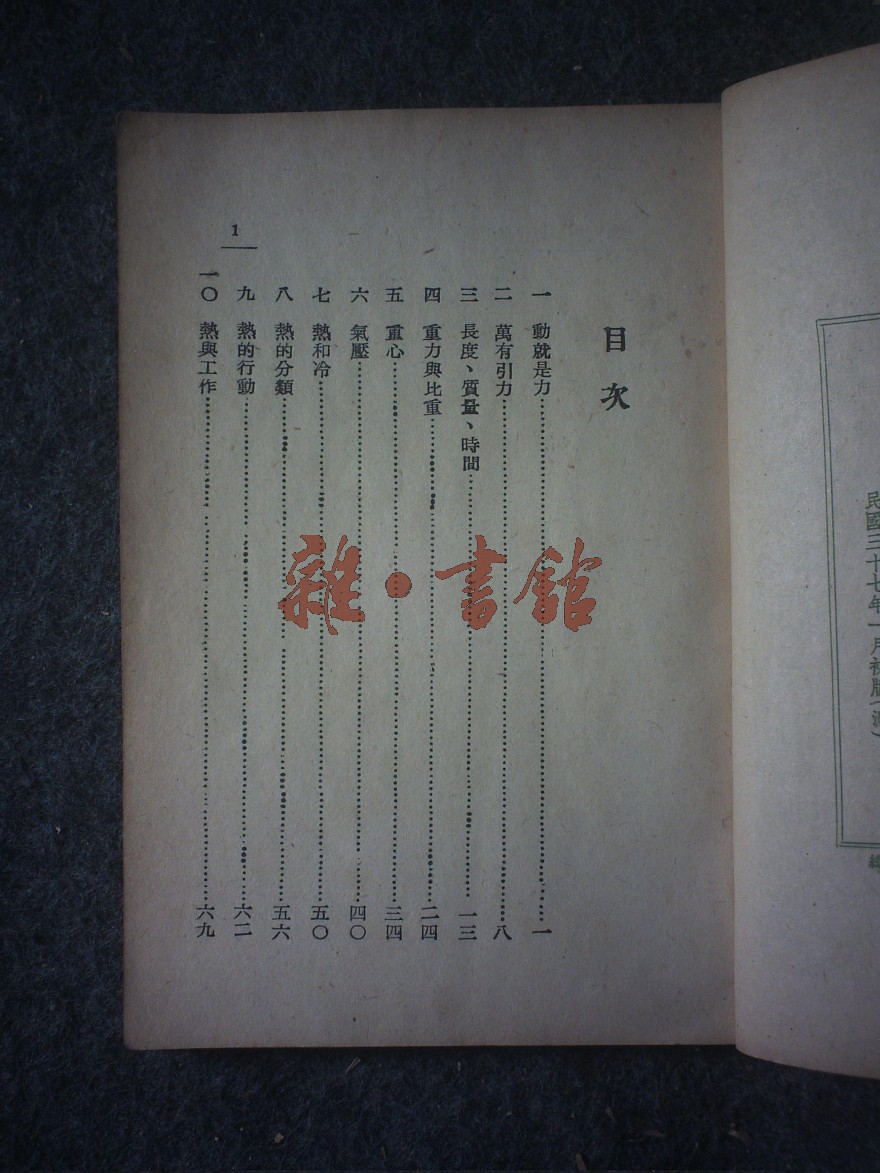 民國三十七年一月初版
目次
一 動就是力 一
二 萬有引力 八
三 長度、質量、時間 一三
四 重力與比重 二四
五 重心 三四
六 氣壓 四〇
七 熱和冷 五〇
八 熱的分類 五六
九 熱的行動 六二
一〇 熱與工作 六九
1
雜·書館